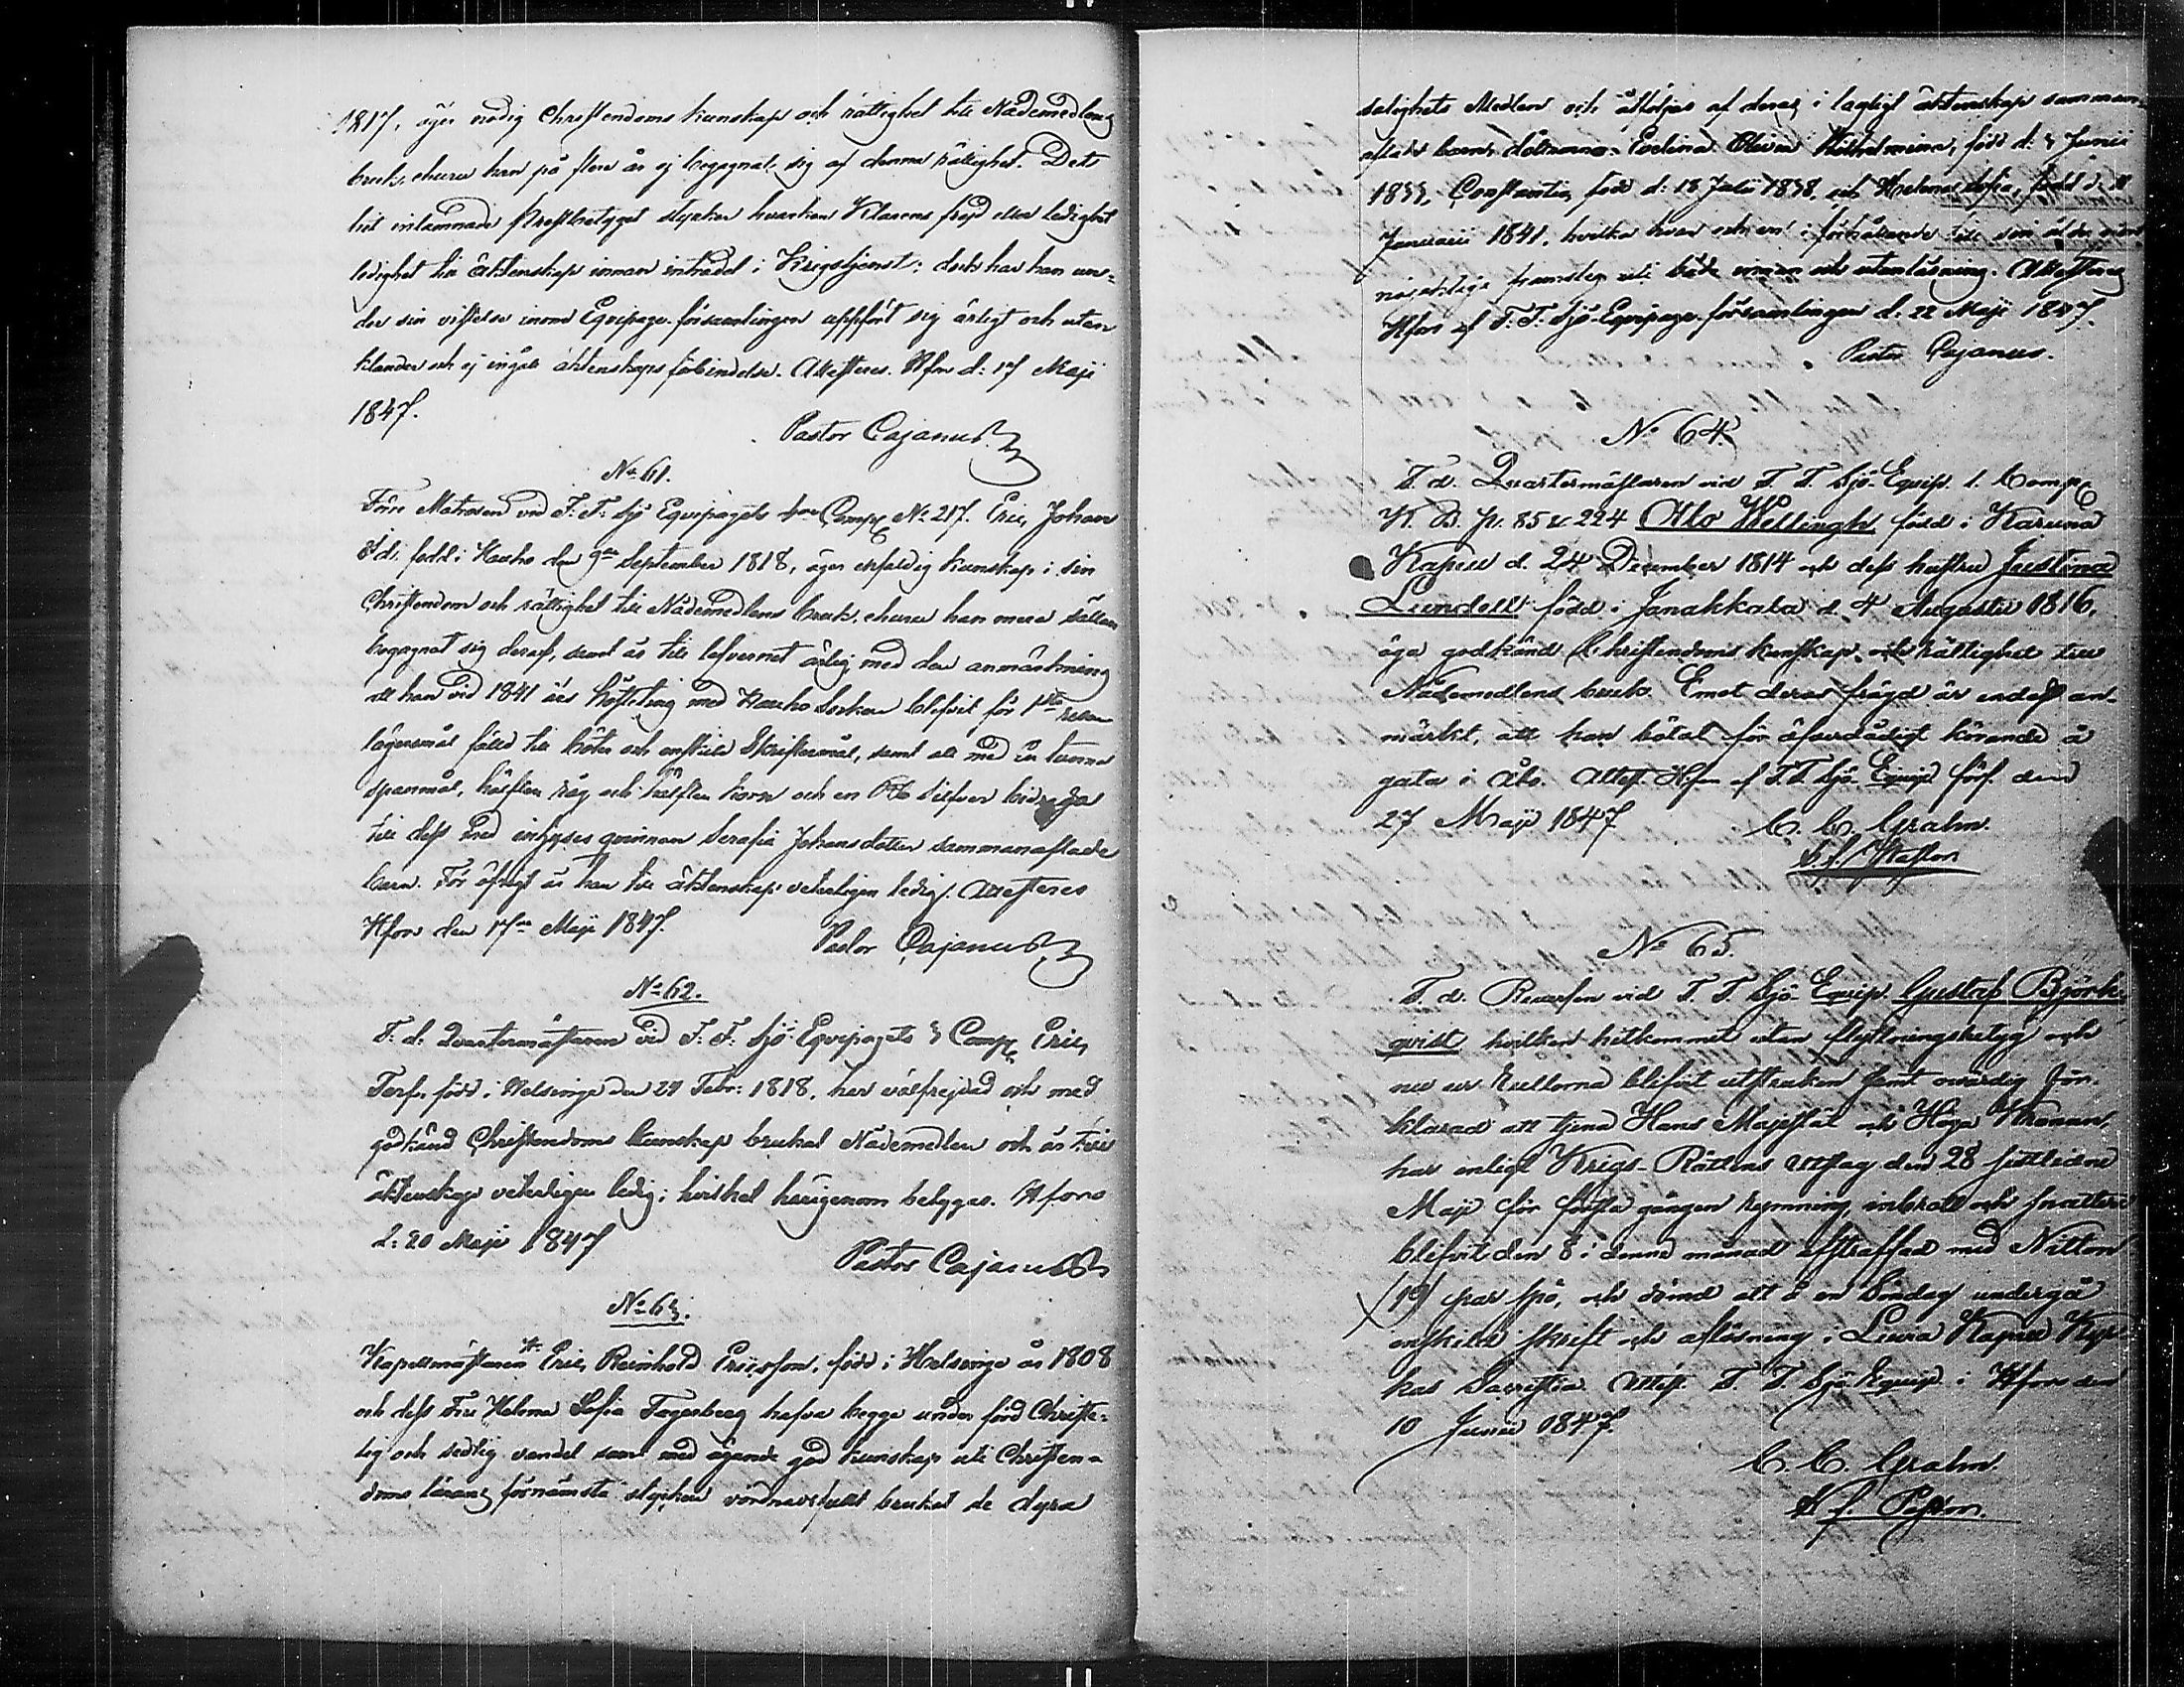 1817, äger nödig Christendoms kunskap och rättighet till Nådemedlens
bruk, ehuru han på flere år ej begagnat sig af denna rättighet. Det
hit inlemnade Prestbetyget styrker hvarken Klarens frejd eller ledighet
ledighet till äktenskap innan inträdet i Krigstjenst; dock har han un-
der sin vistelse inom Equipage-församlingen uppfört sig ärligt och utan
klander och ej ingått äktenskapsförbindelse. Attesteres. Hfors d: 17 Maji
1847.
Pastor Cajanus
No 61.
Förre Matrosen vid F. F. Sjö Equipagets Comp. No 217. Eric Johan
född i Hauho den 9de September 1818, äger enfaldig kunskap i sin
Christendom och rättighet till Nådemedlens bruk, ehuru han mera sällan
begagnat sig deraf, samt är till lefvernet ärlig med den anmärkning
att han vid 1841 års Hösteting med Hauho Socken blifvit för 1sta resan
lägersmål fälld till böter och enskild Skriftermål, samt att med en tunna
spanmål, hälften råg och hälften korn och en Silfver bidraga
till dess med inhyses qvinnan Serafia Johansdotter sammanaflade
barn. För öfrigt är han till äktenskap veterligen ledig. Attesteres
Hfors den 17de Maji 1847.
Pastor Cajanus
No 62.
F. d. Quartermästaren vid F. F. Sjö-Equipagets 3 Comp. Eric
Terf, född i Helsinge den 24 Febr: 1818, har välfrejdad och med
godkänd Christendoms kunskap brukat Nådemedlen och är till
äktenskap veterligen ledig; hvilket härigenom betygas. Hfors
d: 20 Maji 1847
Pastor Cajanus
No 63.
Kapellmästaren Eric Reinhold Ericsson, född i Helsinge år 1808
och dess Fru Helena Sofia Fagerberg hafva begge under förd Christe-
lig och sedlig vandel samt med ägande god kunskap uti Christen-
doms lärans förnämsta stycken vördnadsfullt brukat de dyra
salighets Medlen och åtföljas af deras i lagligt äktenskap samman-
aflade barn döttrarna Evelina Olivia Wilhelmina, född d: 3 Junii
1833, Constantia född d: 18 Julii 1838, och Helena Sofia, född d.
Januarii 1841, hvilka hvar och en i förhållande till sin ålder
framsteg uti både innan och utanläsning. Attesteres
Hfors af F. F. Sjö-Equipage-församlingen d. 22 Maji 1847.
Pastor Cajanus.
No 64.
F. d. Quartermästaren vid F. F. Sjö-Equip. 1. Comp.
K. B. p. 85 & 224 Otto Wellingk född i Karuna
Kapell d. 24 December 1814 och dess hustru Justina
Lundell född i Janakkala d. 4 Augusti 1816,
äga godkänd Christendoms kunskap och rättighet till
Nådemedlens bruk. Emot deras frägd är endast an-
märkt, att han bötat för åfverdådigt körande å
gata i Åbo. Attest. Hfors af F. F. Sjö Equip förs. den
27 Maji 1847.
C. C. Grahn.
t.f. Pastor
No 65.
F. d. Recursen vid F. F. Sjö Equip. Gustaf Björk-
qvist hvilken hitkommit utan flyttningsbetyg och
nu ur Rullorna blifvit utstruken samt ovärdig för-
klarad att tjena Hans Majestät och Höga Kronan,
har enligt Krigs-Rättens utslag den 28 sistlidne
Maji för första gången rymning, inbrott och snatteri
blifvit den 8 i denna månad afstraffad med Nitton
(19) par spö, och dömd att å en Söndag undergå
enskild skrift och aflösning i Luvia Kapell Kyr-
kas Sacristia. Attest. F. F. Sjö Equip. i Hfors den
10 Junii 1847.
C. C. Grahn
t. f. Pastor.